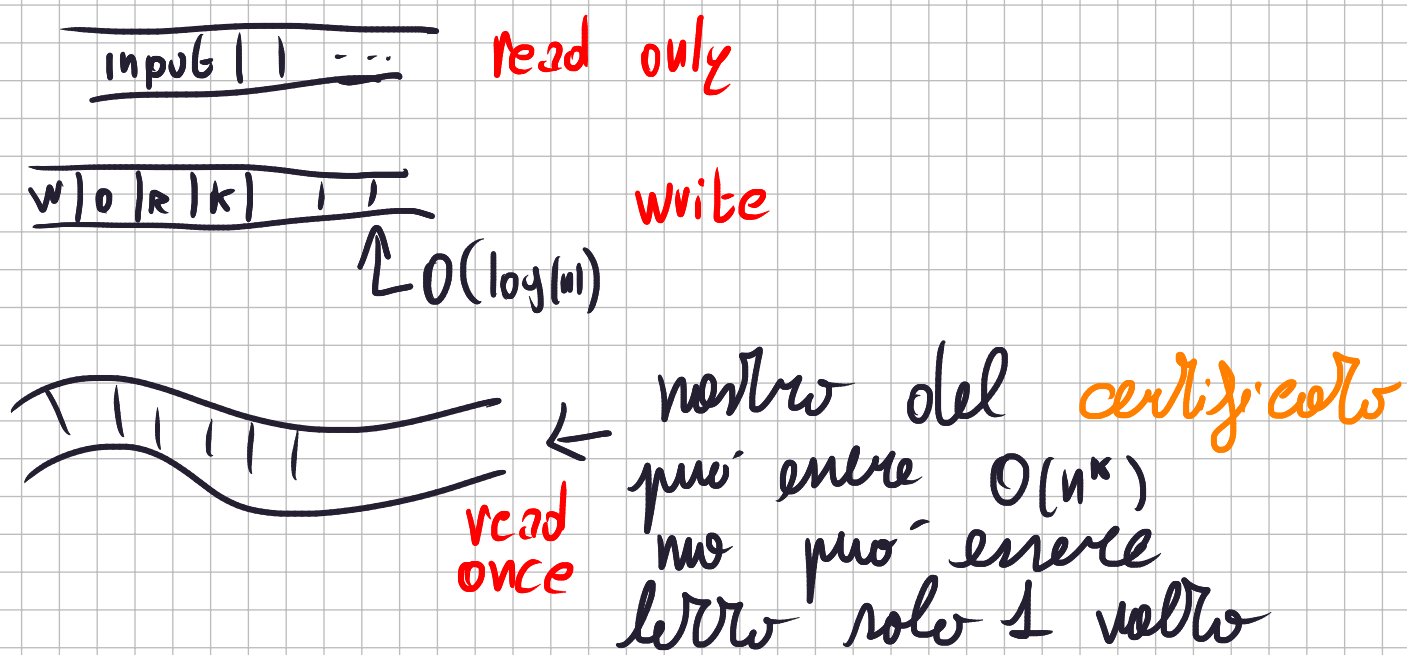 input ... read only
WORK write
O(log(n))
nastro del certificato
può essere O(n^k)
ma può essere
letto solo 1 volta
read
once